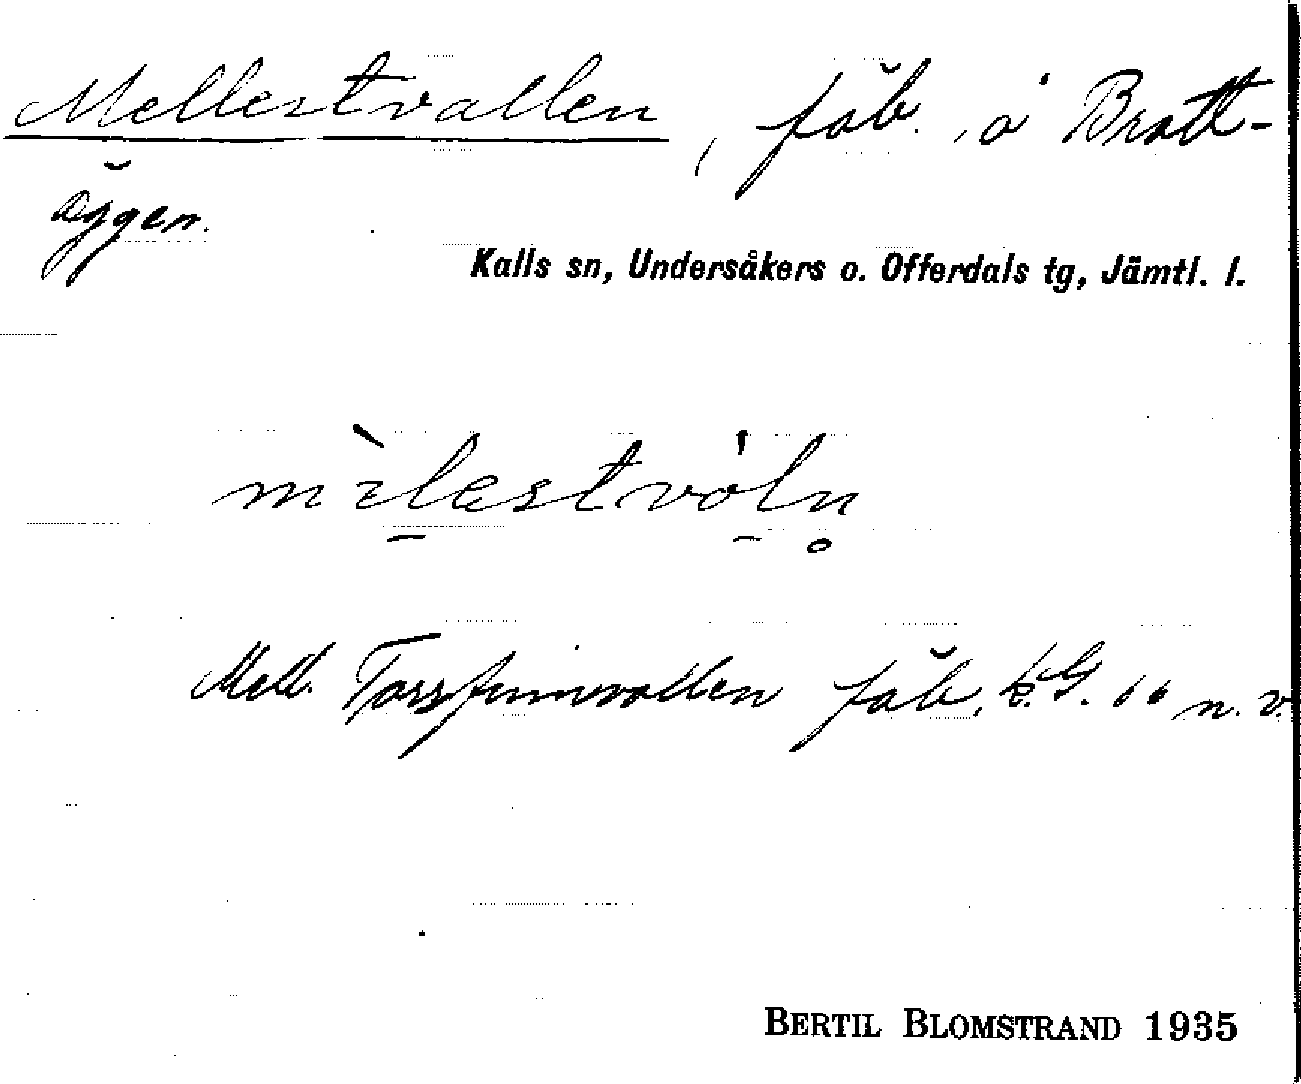 Mellestvallen, fäb. å Bratt-
äggen.
Kalls sn, Undersåkers o. Offerdals tg, Jämtl. l.
mèlestvóln̥
Mell. Torsfinnvallen fäb. k.G. 66 n.v.
BERTIL BLOMSTRAND 1935